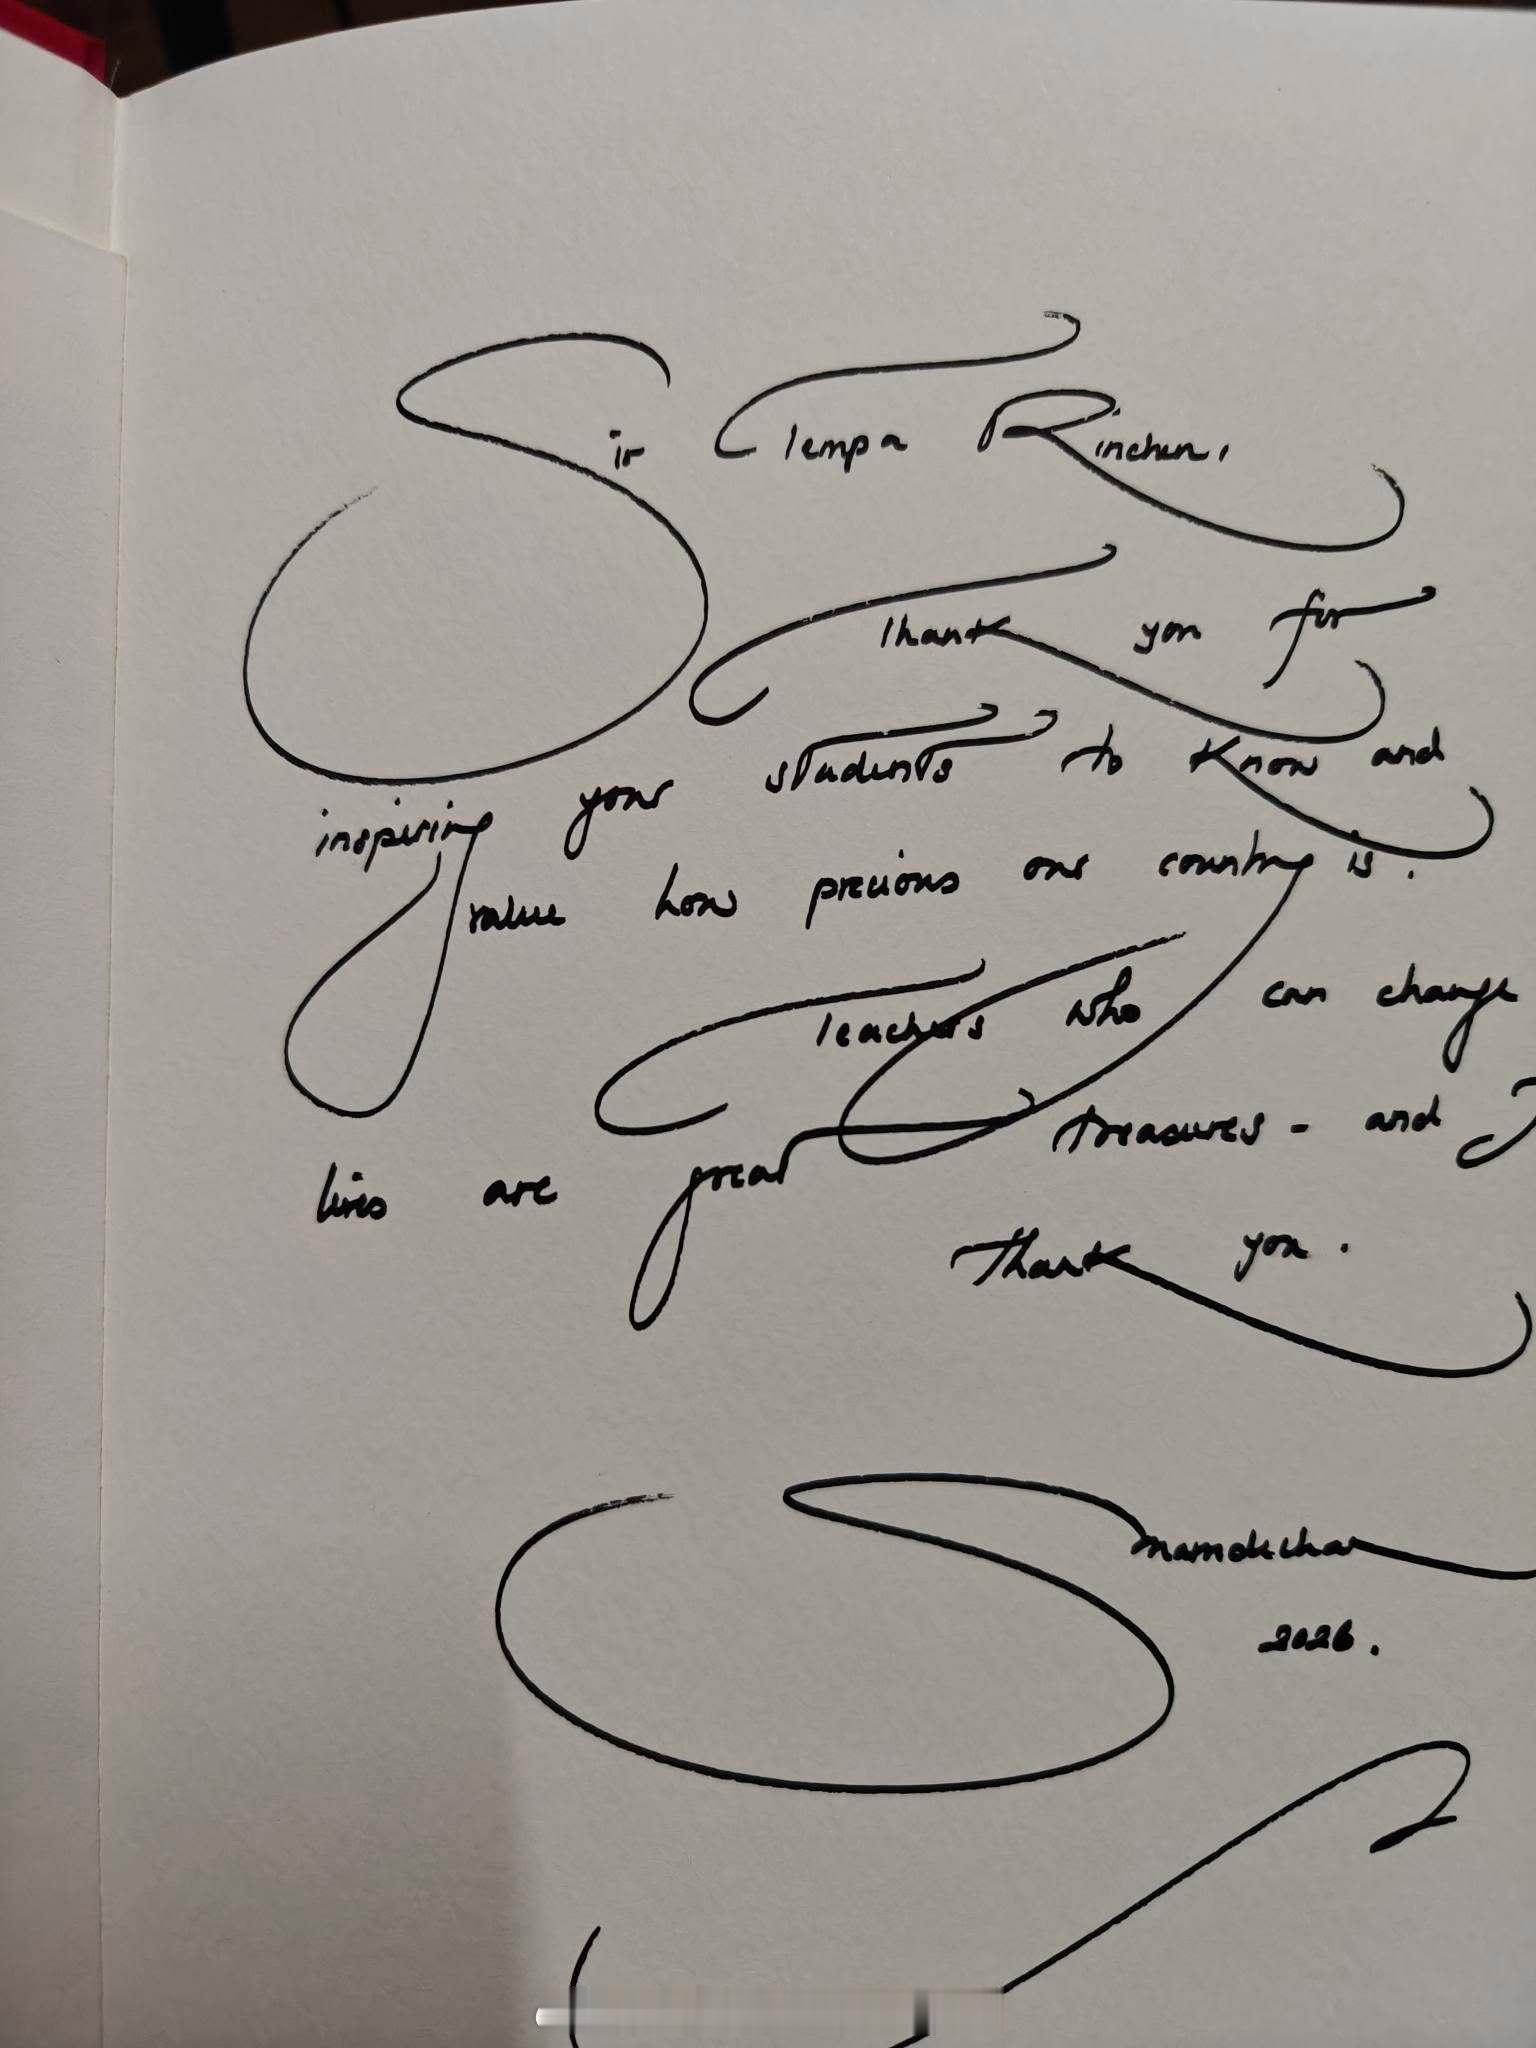 Sir Tempa Rinchen,
Thank you for
inspiring your students to know and
value how precious our country is.
Teachers who can change
lives are great treasures - and I
Thank you.
2026.